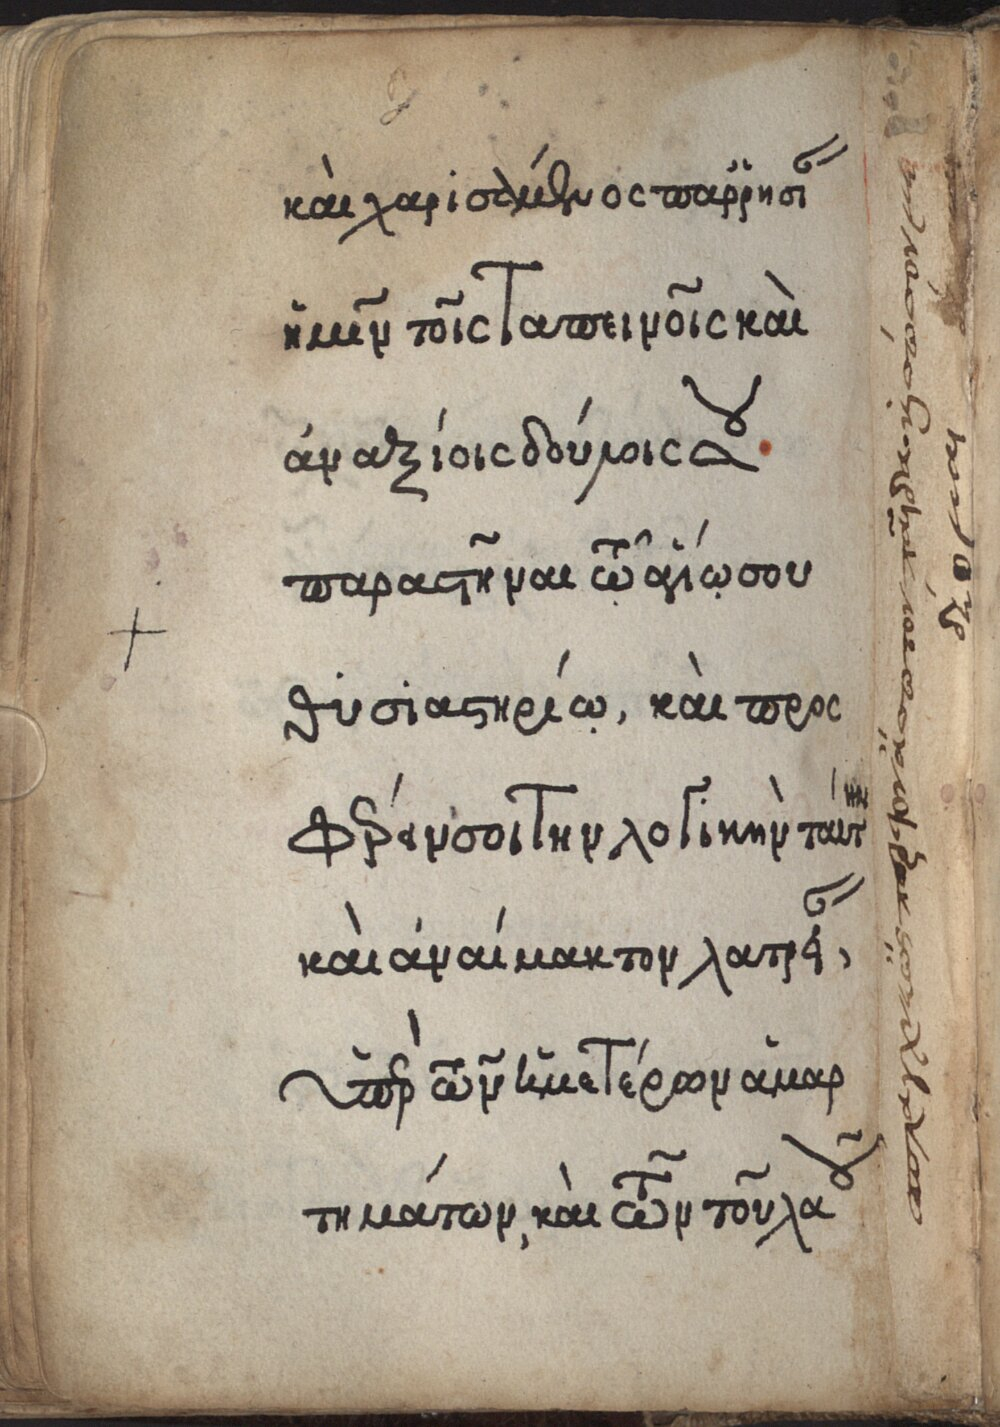 καὶ χαρισάμενος παρρησί
ἡμῖν τοῖς ταπεινοῖς καὶ
ἀναξίοις δούλοις σου
παραστῆναι τῷ ἁγίῳ σου
θυσιαστηρίῳ, καὶ προς
φέρειν σοι τὴν λογικὴν ταύτην
καὶ ἀναίμακτον λατρεί,
ὑπὲρ τῶν ἡμετέρων ἁμαρ
τημάτων, καὶ τῶν τοῦ λαοῦ